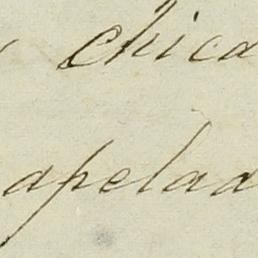 chica
apelad